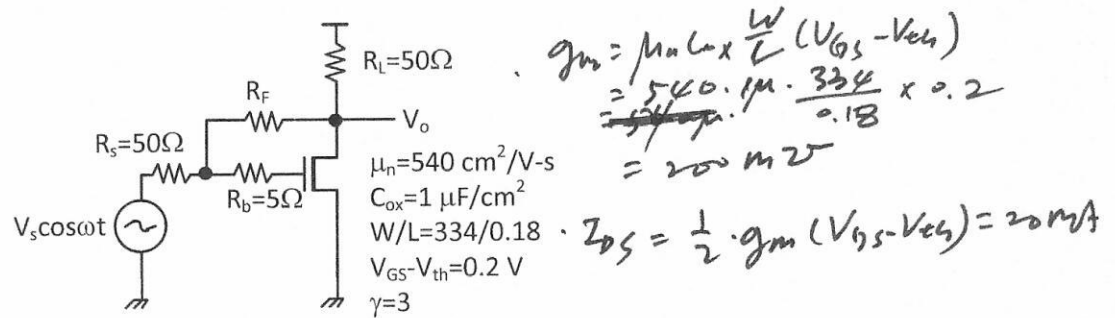 R_L=50Ω
R_F
V_o
R_s=50Ω
R_b=5Ω
V_scosωt
μ_n=540 cm²/V-s
C_ox=1 μF/cm²
W/L=334/0.18
V_GS-V_th=0.2 V
γ=3
· g_m = μ_n C_ox W/L (V_GS-V_th)
= 540 · 1μ · 334/0.18 × 0.2
= 200 m℧
· I_DS = 1/2 · g_m (V_GS-V_th) = 20 mA